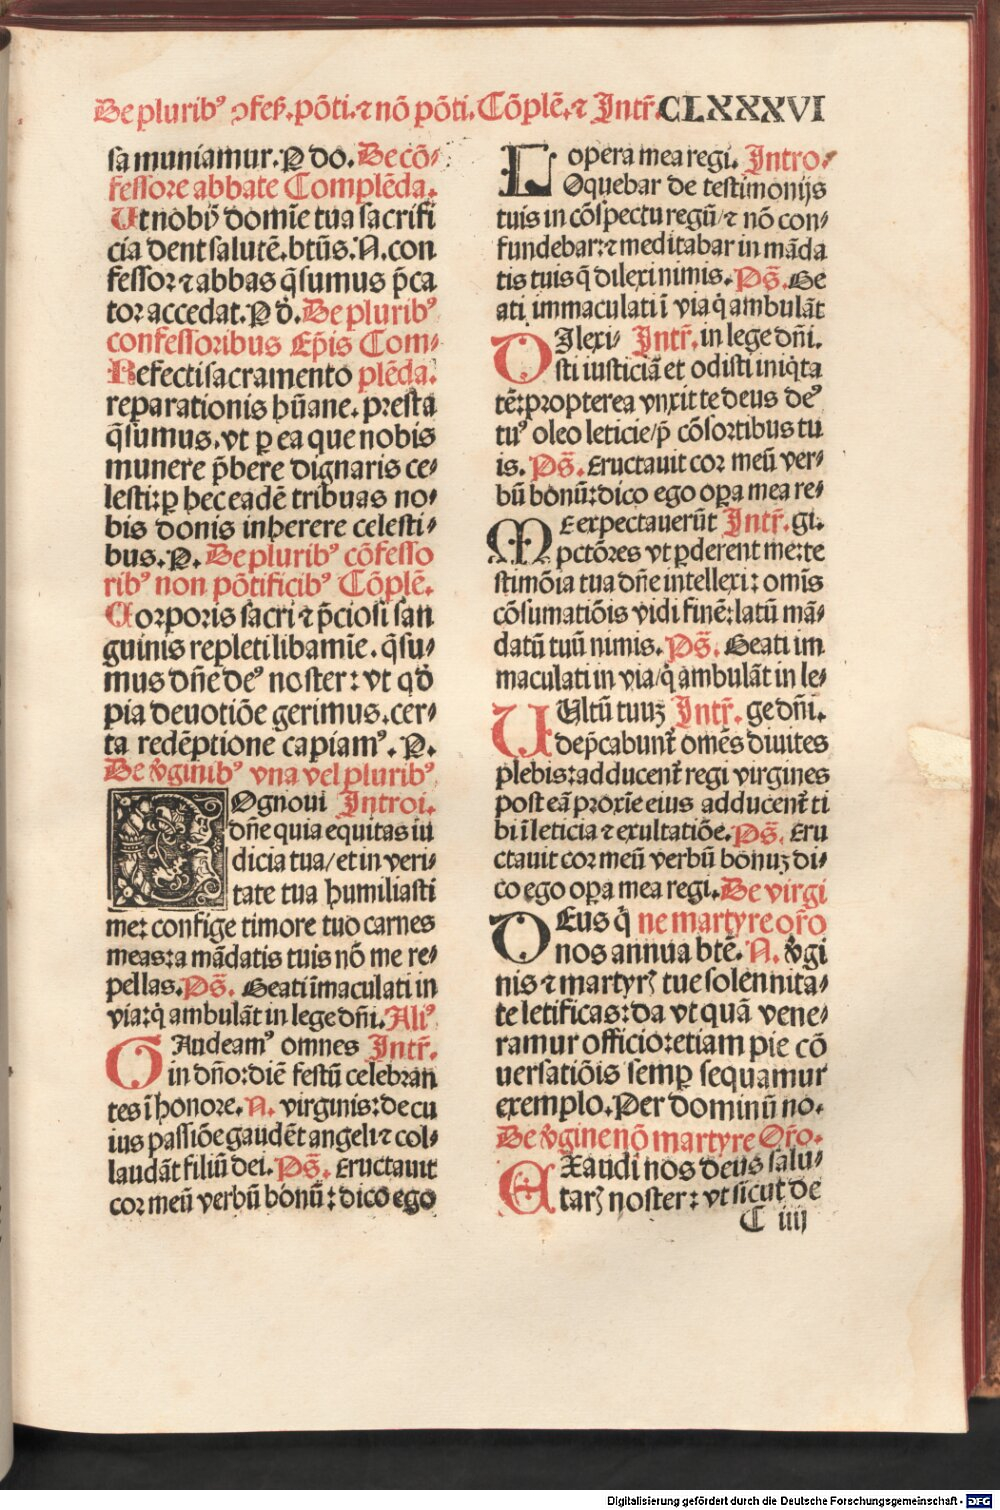 De pluribꝰ ↄfeſſ.põti.⁊ nõ põti.Cõplẽ.⁊ Intr̃.CLXXXVI
ſa muniamur.P do. De cõ-
feſſore abbate Complẽda.
Ut nobꝭ domĩe tua ſacrifi
cia dent ſalutẽ.btũs.N.con
feſſor ⁊ abbas q̃ſumus p̃ca
tor accedat.P dõ.De pluribꝰ
confeſſoribus Ep̃is Com-
Refecti ſacramento plẽda.
reparationis hũane.preſta
q̃ſumus.vt ꝑ ea que nobis
munere p̃bere dignaris ce-
leſti:ꝑ hec eadẽ tribuas no-
bis donis inherere celeſti-
bus.P. De pluribꝰ cõfeſſo
ribꝰ non põtificibꝰ Cõplẽ.
Corporis ſacri ⁊ p̃cioſi ſan
guinis repleti libamĩe.q̃ſu-
mus dñe deꝰ noſter: vt qď
pia deuotiõe gerimus.cer-
ta redẽptione capiamꝰ.P.
De ꝟginibꝰ vna vel pluribꝰ
COgnoui Introi.
dñe quia equitas iu
dicia tua/et in veri-
tate tua humiliaſti
me: confige timore tuo carnes
meas:a mãdatis tuis nõ me re-
pellas.Ps̃. Beati ĩmaculati in
via:q̃ ambulãt in lege dñi.Aliꝰ
GAudeamꝰ omnes Intr̃.
in dño:diẽ feſtũ celebran
tes ĩ honore.N. virginis:de cu
ius paſſiõe gaudẽt angeli ⁊ col-
laudãt filiũ dei.Ps̃. Eructauit
cor meũ verbũ bonũ: dico ego
Lopera mea regi. Intro.
Oquebar de teſtimonijs
tuis in cõſpectu regũ/⁊ nõ con-
fundebar:⁊ meditabar in mãda
tis tuis q̃ dilexi nimis.Ps̃.Be
ati immaculati ĩ via q̃ ambulãt
DIlexi- Intr̃.in lege dñi.
ſti iuſticiã et odiſti iniq̃ta
tẽ:propterea vnxit te deus deꝰ
tuꝰ oleo leticie/p̃ cõſortibus tu
is. Ps̃. Eructauit cor meũ ver-
bũ bonũ:dico ego oꝑa mea re-
ME expectauerũt Intr̃.gi.
pctõres vt ꝑderent me:te
ſtimõia tua dñe intellexi: omĩs
cõſumatiõis vidi finẽ:latũ mã-
datũ tuũ nimis. Ps̃. Beati im
maculati in via/q̃ ambulãt in le-
VUltũ tuuʒ Intr̃. ge dñi.
dep̃cabunt̃ omẽs diuites
plebis:adducent̃ regi virgines
poſt eã proxĩe eius adducent̃ ti
bi ĩ leticia ⁊ exultatiõe.Ps̃. Eru
ctauit cor meũ verbũ bonuʒ di-
co ego oꝑa mea regi.De virgi
DEus q̃ ne martyre or̃o
nos annua btẽ. N. ꝟgi
nis ⁊ martyrꝭ tue ſolennita-
te letificas:da vt quã vene-
ramur officio:etiam pie cõ
uerſatiõis ſemꝑ ſequamur
exemplo.Per dominũ no.
De ꝟgine nõ martyre Or̃o.
EXaudi nos deus ſalu-
tarꝭ noſter: vt ſicut de
C iiij
Digitalisierung gefördert durch die Deutsche Forschungsgemeinschaft - DFG